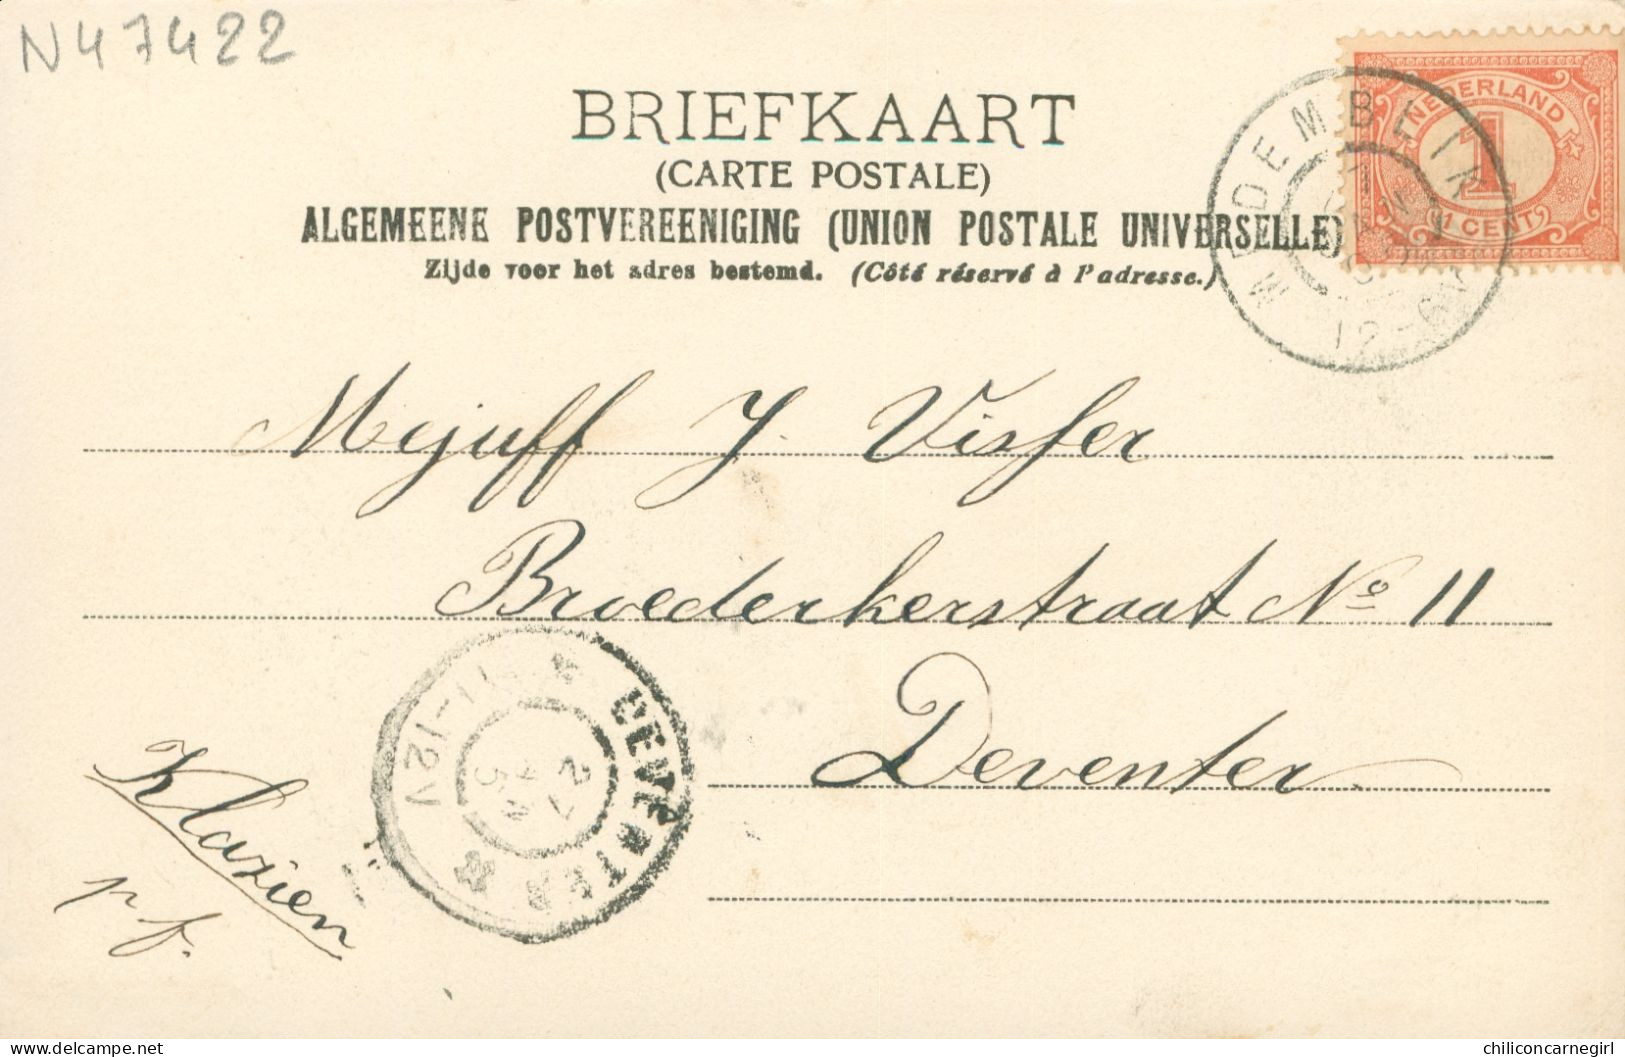 N47422
BRIEFKAART
(CARTE POSTALE)
ALGEMEENE POSTVEREENIGING (UNION POSTALE UNIVERSELLE)
Zijde voor het adres bestemd. (Côté réservé à l'adresse.)
NEDERLAND
1
1 CENT
MEDEMBLIK
Mejuff J. Visser
Broederkerstraat No 11
Deventer
DEVENTER
11-12V
Klazien
p. f.
chiliconcarnegirl